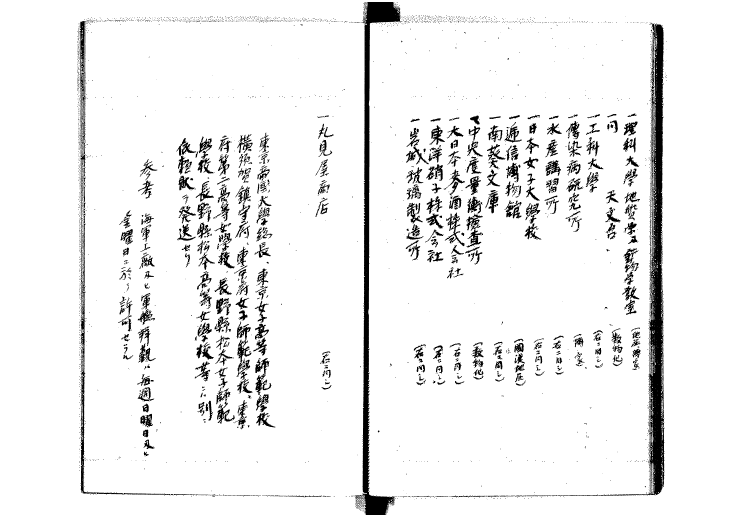 一理科大學地質學及動物學教室 (地歴博家
一同 天文台 (数物化)
一工科大學 (右二同シ)
一傳染病研究所 (博家
一水産講習所 (右二同シ)
一日本女子大學校 (右二同シ)
一逓信博物館 (國漢地歴)
一南葵文庫 (右二同シ)
一中央度量衡檢査所 (数物化)
一大日本麥酒株式会社 (右二同シ)
一東洋硝子株式会社 (右二同シ)
一岩城玻璃製造所 (右二同シ)
一丸見屋商店 (右二同シ)
東京帝国大學総長、東京女子高等師範學校
横須賀鎮守府、東京府女子師範學校、東京
府第二高等女學校、長野縣松本女子師範
學校、長野縣松本高等女學校等ニハ別ニ
依頼状ヲ発送セリ
参考 海軍工廠及ヒ軍艦拝觀ハ毎週日曜日及ヒ
金曜日ニ於テ許可セラル